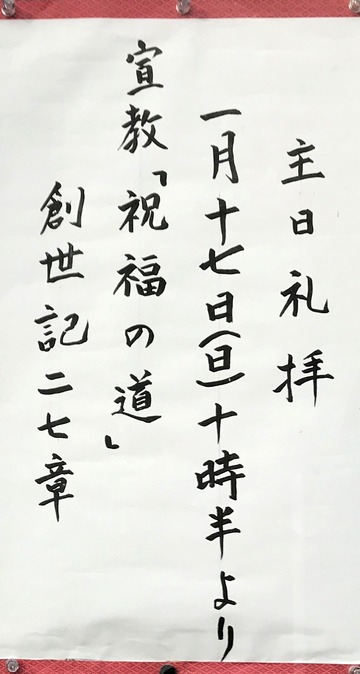 主日礼拝
一月十七日(日)十時半より
宣教「祝福の道」
創世記二七章